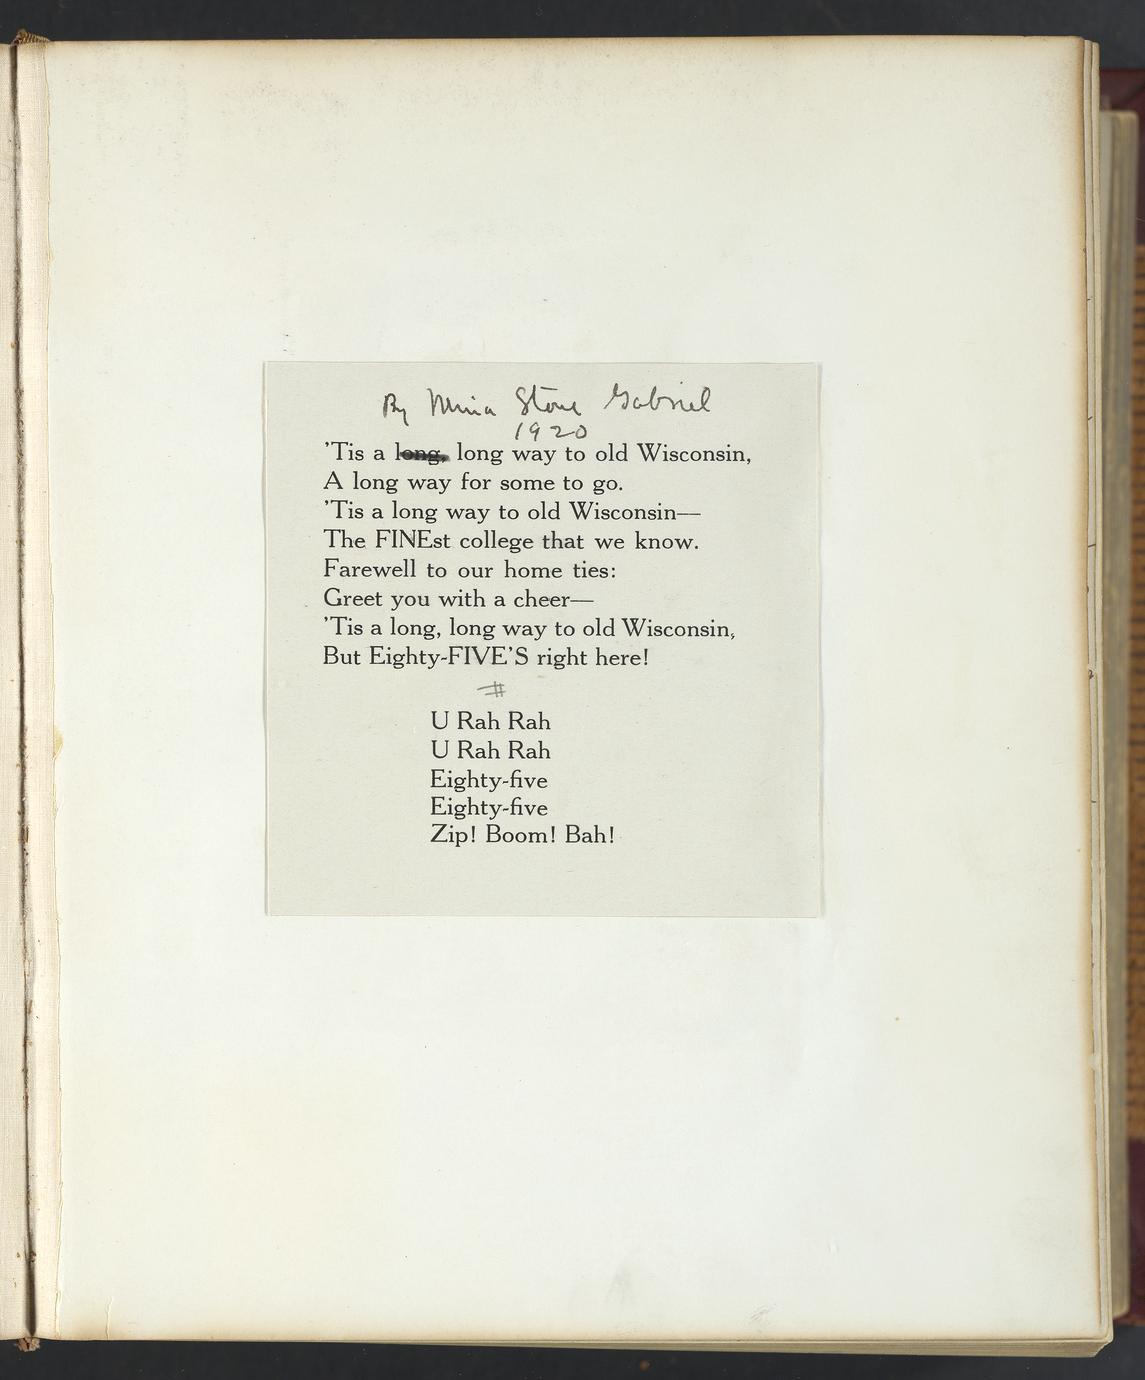 By Mina Stone Gabriel
1920
’Tis a long, long way to old Wisconsin,
A long way for some to go.
’Tis a long way to old Wisconsin—
The FINEst college that we know.
Farewell to our home ties:
Greet you with a cheer—
’Tis a long, long way to old Wisconsin,
But Eighty-FIVE’S right here!
#
U Rah Rah
U Rah Rah
Eighty-five
Eighty-five
Zip! Boom! Bah!